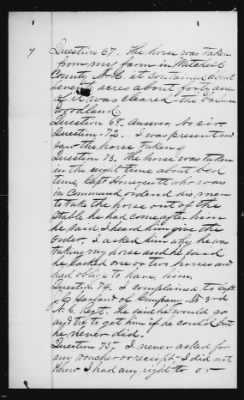 7
Question 67. The horse was taken
from my farm in Watered
County N.C. it contained about
seventy acres about forty acres
of it was cleared the balance
Woodland.
Question 68. Answer No sir
Question 72. I was present and
saw the horse taken
Question 73. The horse was taken
in the night time about bed
time, Capt who was
in Command ordered his men
to take the horse out of the
Stable he had come after him
he said I heard him give the
Order, I asked him why he was
taking my horse and he said
he lacked one or two horses and
had oblige to have him
Question 74. I complained to Capt
Garland of Company 3rd
N.C. Regt. he said he would go
and try to get him if he could but
he never did.
Question 75. I never asked for
any voucher or receipt, I did not
Know I had any right to or